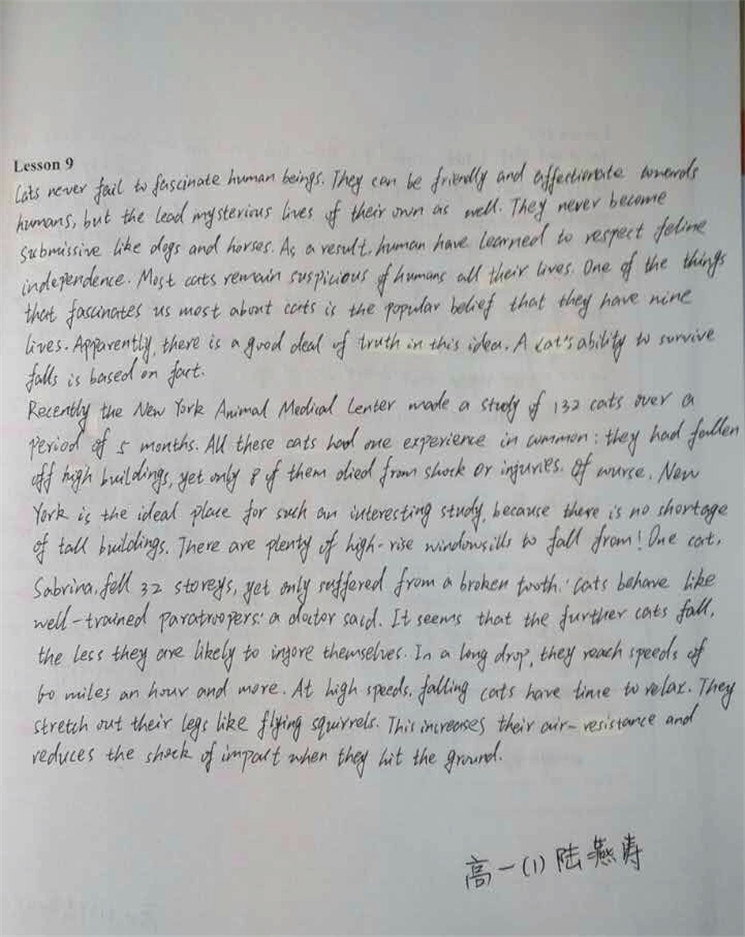 Lesson 9
Cats never fail to fascinate human beings. They can be friendly and affectionate towards
humans, but the lead mysterious lives of their own as well. They never become
submissive like dogs and horses. As a result, human have learned to respect feline
independence. Most cats remain suspicious of humans all their lives. One of the things
that fascinates us most about cats is the popular belief that they have nine
lives. Apparently, there is a good deal of truth in this idea. A cat's ability to survive
falls is based on fact.
Recently the New York Animal Medical Center made a study of 132 cats over a
period of 5 months. All these cats had one experience in common: they had fallen
off high buildings, yet only 8 of them died from shock or injuries. Of course, New
York is the ideal place for such an interesting study, because there is no shortage
of tall buildings. There are plenty of high-rise windowsills to fall from! One cat,
Sabrina, fell 32 storeys, yet only suffered from a broken tooth. 'Cats behave like
well-trained paratroopers.' a doctor said. It seems that the further cats fall,
the less they are likely to injore themselves. In a long drop, they reach speeds of
60 miles an hour and more. At high speeds, falling cats have time to relax. They
stretch out their legs like flying squirrels. This increases their air-resistance and
reduces the shock of impact when they hit the ground.
高一(1) 陆燕寿